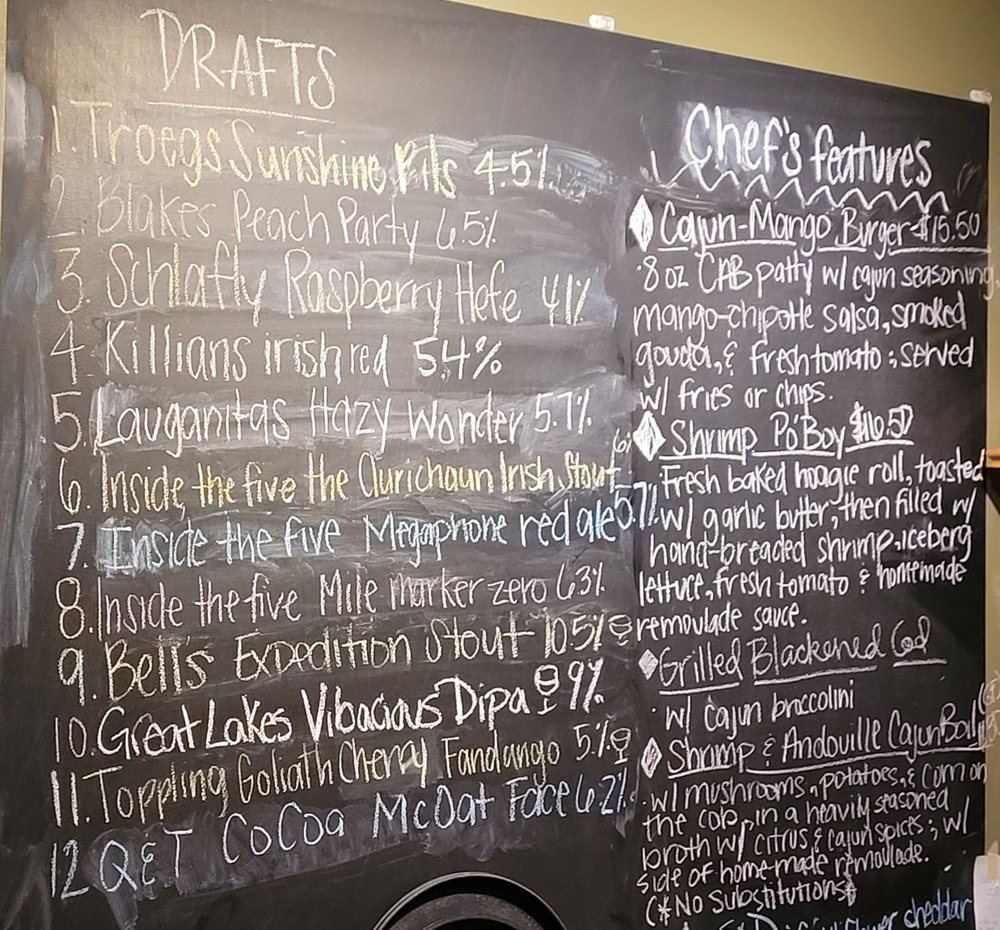 DRAFTS
1. Troegs Sunshine Pils 4.5%
2. Blakes Peach Party 6.5%
3. Schlafly Raspberry Hefe 4.1%
4 Killians irish red 5.4%
5. Lauganitas Hazy Wonder 5.7%
6. Inside the five the Aurichaun Irish Stout 6%
7. Inside the five Megaphone red ale 5.7%
8. Inside the five Mile marker zero 6.3%
9. Bell's Expedition Stout 10.5%
10. Great Lakes Vibacious Dipa 9%
11. Toppling Goliath Cherry Fandango 5%
12 Q&T CoCoa McOat Face 6.2%
Chef's features
Cajun-Mango Burger-$15.50
·8 oz CAB patty w/ cajun seasoning,
mango-chipotle salsa, smoked
gouda, & fresh tomato; served
w/ fries or chips.
Shrimp Po'Boy $16.50
·Fresh baked hoagie roll, toasted
w/ garlic butter, then filled w/
hand-breaded shrimp, iceberg
lettuce, fresh tomato & homemade
remoulade sauce.
Grilled Blackened Cod
· w/ cajun broccolini
Shrimp & Andouille Cajun Boil
·w/ mushrooms, potatoes, & corn on
the cob, in a heavily seasoned
broth w/ citrus & cajun spices; w/
side of home-made remoulade.
(*No Substitutions*
cheddar